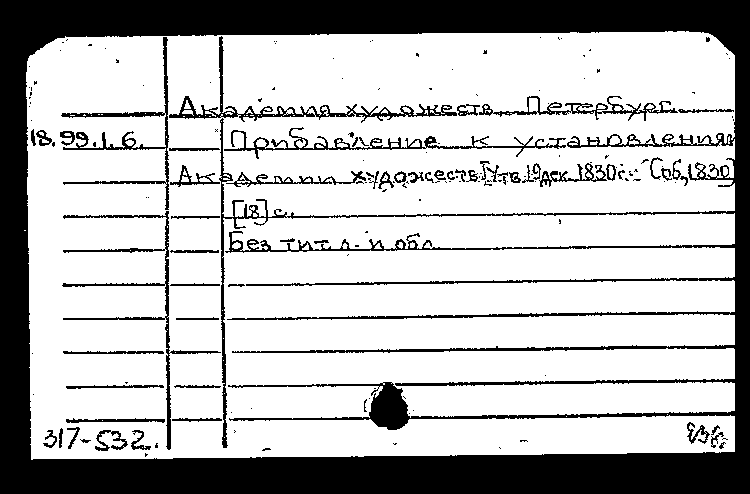 Академия художеств. Петербург.
18.99.1.6. Прибавление к установлениям
Академии художеств [Утв. 19 дек. 1830 г. Спб, 1830]
[18] с.
Без тит. л. и обл.
317-532.